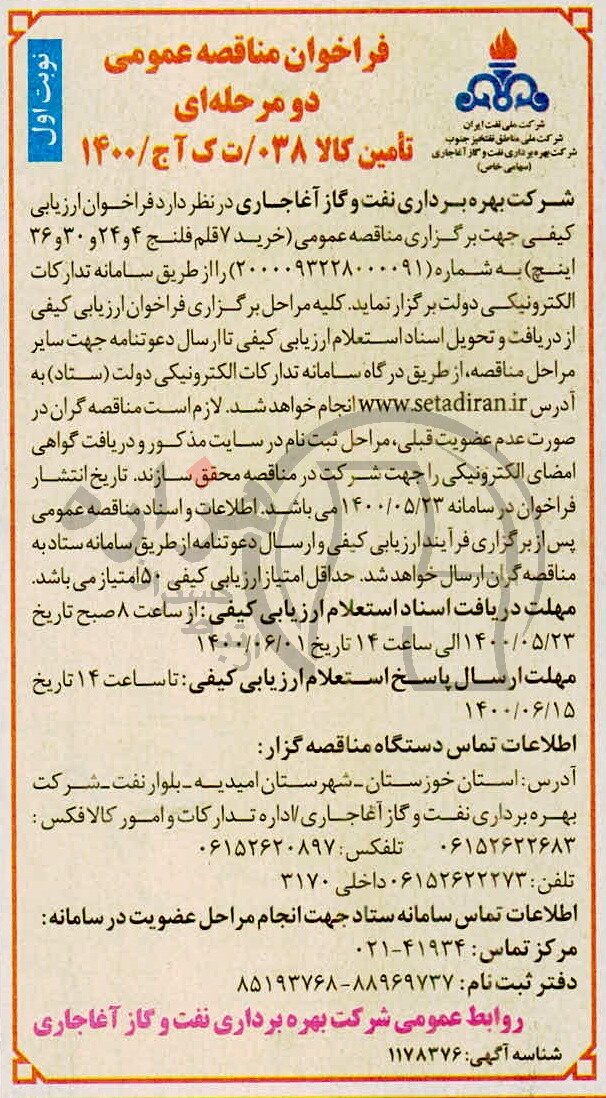 نوبت اول
فراخوان مناقصه عمومی
دو مرحله‌ای
تأمین کالا ۰۳۸/ت ک آ ج/۱۴۰۰
شرکت ملی نفت ایران
شرکت ملی مناطق نفتخیز جنوب
شرکت بهره برداری نفت و گاز آغاجاری
(سهامی خاص)
شرکت بهره برداری نفت و گاز آغاجاری در نظر دارد فراخوان ارزیابی
کیفی جهت برگزاری مناقصه عمومی (خرید ۷ قلم فلنج ۴ و ۲۴ و ۳۰ و ۳۶
اینچ) به شماره (۲۰۰۰۰۹۳۲۲۸۰۰۰۰۹۱) را از طریق سامانه تدارکات
الکترونیکی دولت برگزار نماید. کلیه مراحل برگزاری فراخوان ارزیابی کیفی
از دریافت و تحویل اسناد استعلام ارزیابی کیفی تا ارسال دعوتنامه جهت سایر
مراحل مناقصه، از طریق درگاه سامانه تدارکات الکترونیکی دولت (ستاد) به
آدرس www.setadiran.ir انجام خواهد شد. لازم است مناقصه گران در
صورت عدم عضویت قبلی، مراحل ثبت نام در سایت مذکور و دریافت گواهی
امضای الکترونیکی را جهت شرکت در مناقصه محقق سازند. تاریخ انتشار
فراخوان در سامانه ۱۴۰۰/۰۵/۲۳ می باشد. اطلاعات و اسناد مناقصه عمومی
پس از برگزاری فرآیند ارزیابی کیفی و ارسال دعوتنامه از طریق سامانه ستاد به
مناقصه گران ارسال خواهد شد. حداقل امتیاز ارزیابی کیفی ۵۰ امتیاز می باشد.
مهلت دریافت اسناد استعلام ارزیابی کیفی: از ساعت ۸ صبح تاریخ
۱۴۰۰/۰۵/۲۳ الی ساعت ۱۴ تاریخ ۱۴۰۰/۰۶/۰۱
مهلت ارسال پاسخ استعلام ارزیابی کیفی: تا ساعت ۱۴ تاریخ
۱۴۰۰/۰۶/۱۵
اطلاعات تماس دستگاه مناقصه گزار:
آدرس: استان خوزستان - شهرستان امیدیه - بلوار نفت - شرکت
بهره برداری نفت و گاز آغاجاری/اداره تدارکات و امور کالا فکس:
۰۶۱۵۲۶۲۲۶۸۳ تلفکس: ۰۶۱۵۲۶۲۰۸۹۷
تلفن: ۰۶۱۵۲۶۲۲۲۷۳ داخلی ۳۱۷۰
اطلاعات تماس سامانه ستاد جهت انجام مراحل عضویت در سامانه:
مرکز تماس: ۴۱۹۳۴-۰۲۱
دفتر ثبت نام: ۸۸۹۶۹۷۳۷-۸۵۱۹۳۷۶۸
روابط عمومی شرکت بهره برداری نفت و گاز آغاجاری
شناسه آگهی: ۱۱۷۸۳۷۶